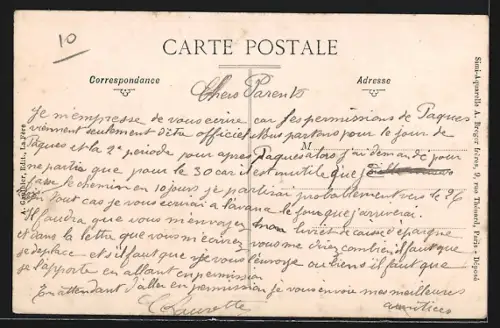 10
CARTE POSTALE
Correspondance
Adresse
Chers Parents
Je m'empresse de vous ecrire car les permissions de Paques
viennent seulement d'etre officiel. Nous partons pour le jour de
Paques et la 2e periode pour apres Paques alors j'ai demandé pour
M
ne partir que pour le 30 car il est inutile que je
fasse le chemin en 10 jours je partirai probablement vers le 26
Tout cas je vous ecrirai a l'avance le jour que j'arriverai.
Il faudra que vous m'envoyez mon livret de caisse d'épargne
et dans la lettre que vous m'ecrirez vous me direz combien il faut que
je deplace et s'il faut que je vous l'envoye ou bien s'il faut que
je l'apporte en allant en permission
En attendant d'aller en permission je vous envoie mes meilleures
amitiées
A. G., Edit., La Fère
Simi-Aquarelle A. Breger frères, 9, rue Thénard, Paris - Déposé